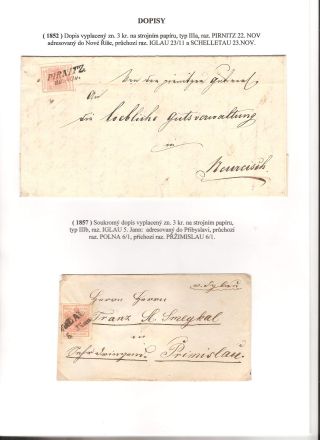 DOPISY
( 1852 ) Dopis vyplacený zn. 3 kr. na strojním papíru, typ IIIa, raz. PIRNITZ 22. NOV
adresovaný do Nové Říše, průchozí raz. IGLAU 23/11 a SCHELLETAU 23.NOV.
PIRNITZ
An
Die loebliche Gutsverwaltung
in
Neureisch
( 1857 ) Soukromý dopis vyplacený zn. 3 kr. na strojním papíru,
typ IIIb, raz. IGLAU 5. Jann: adresovaný do Přibyslavi, průchozí
raz. POLNA 6/1, příchozí raz. PŘZIMISLAU 6/1.
IGLAU
Herrn Herrn
Franz A. Smejkal
in
Primislau.